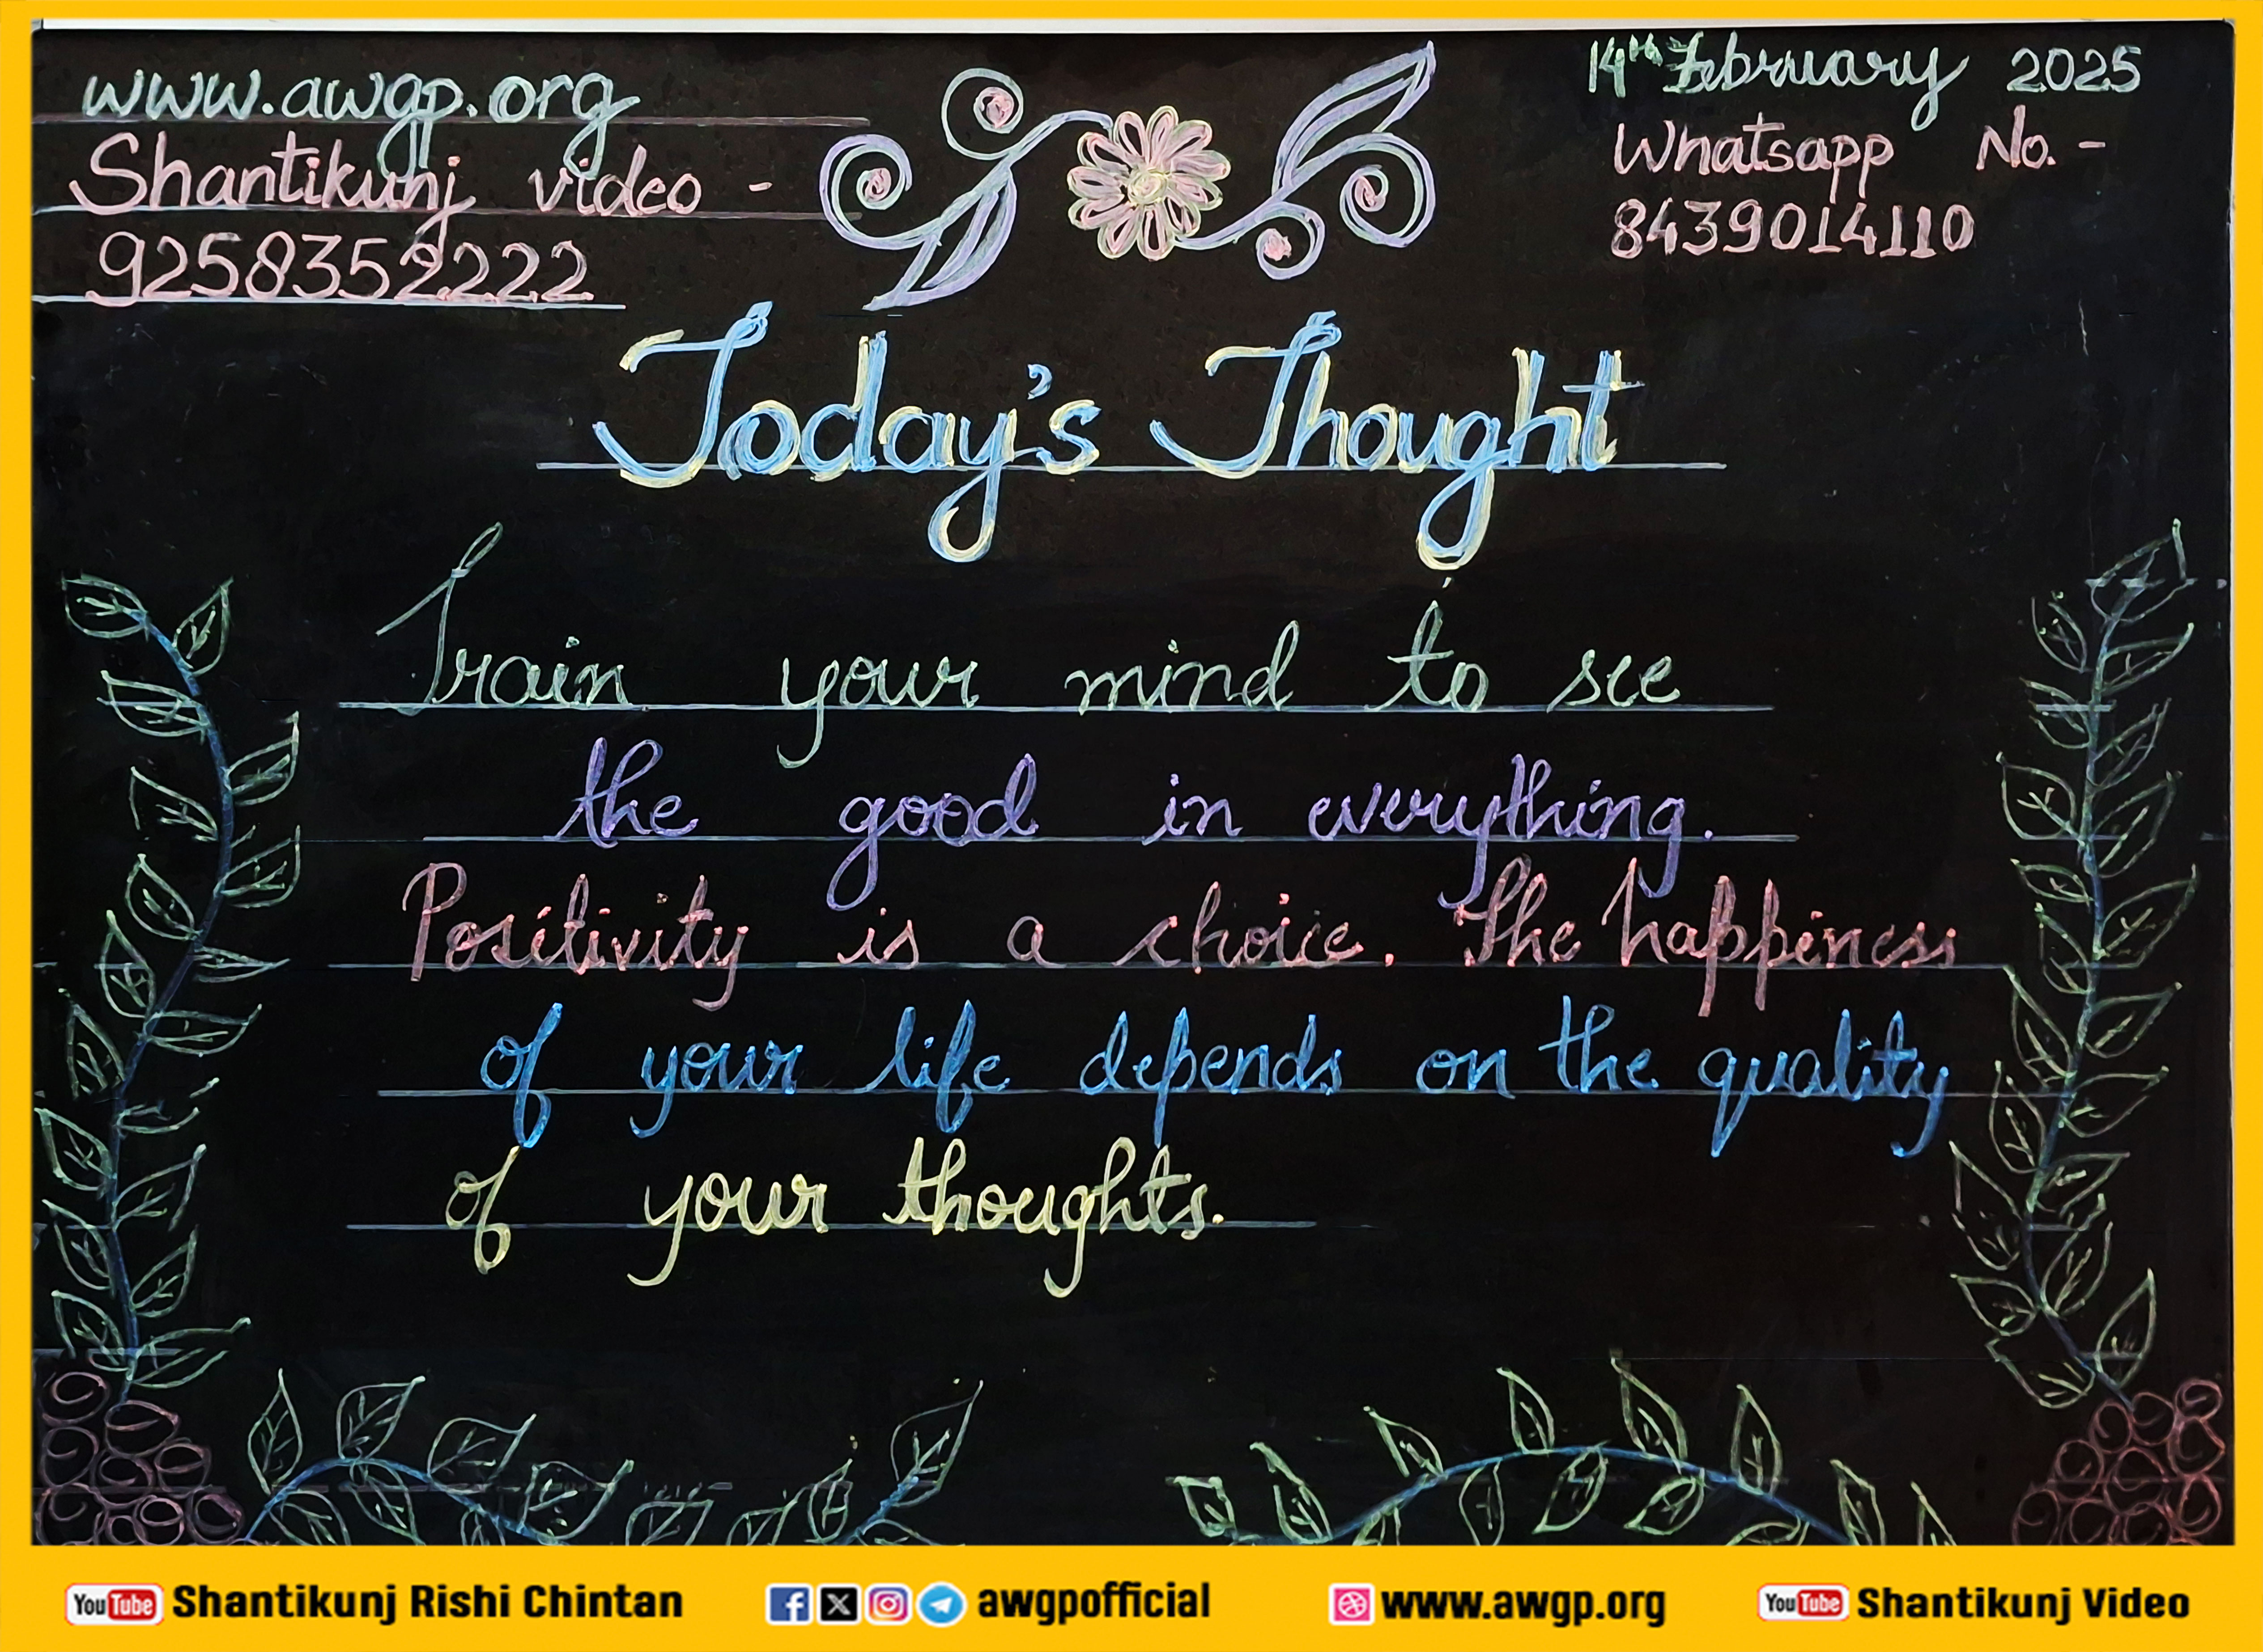 www.awgp.org
Shantikunj video -
9258352222
14th February 2025
Whatsapp No. -
8439014110
Today's Thought
Train your mind to see
the good in everything.
Positivity is a choice. The happiness
of your life depends on the quality
of your thoughts.
YouTube Shantikunj Rishi Chintan
awgpofficial
www.awgp.org
YouTube Shantikunj Video